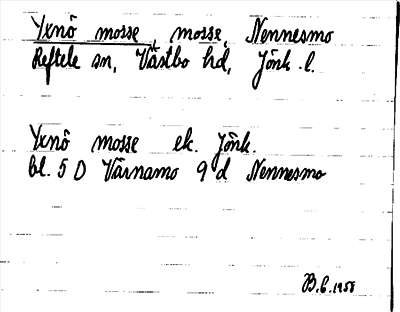 Yxnö mosse, mosse, Nennesmo
Reftele sn, Västbo hd, Jönk. l.
Yxnö mosse ek. Jönk.
bl. 5 D Värnamo 9 d Nennesmo
B.C. 1958